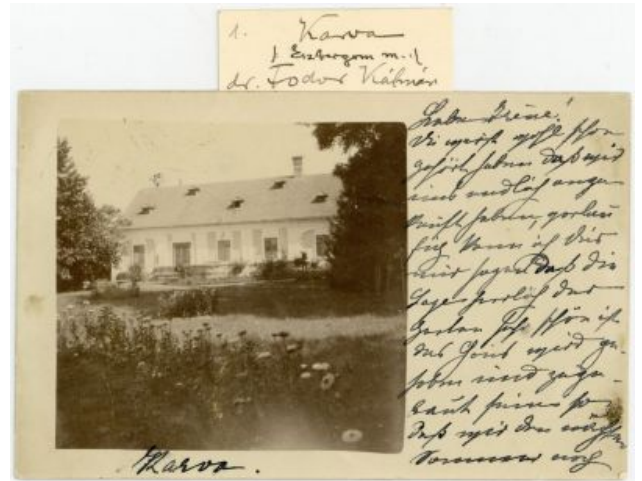 1. Karva
(Esztergom m.)
dr. Fodor Kálmán
Liebe Irène!
Du wirst wohl schon
gehört haben daß wir
uns endlich ange
kauft haben, vorläu
fig kann ich Dir
nur sagen daß die
Lage herrlich der
Garten sehr schön ist
das Haus wird ge
hoben und zuge
baut so
daß wir den nächsten
Sommer noch
Karva.